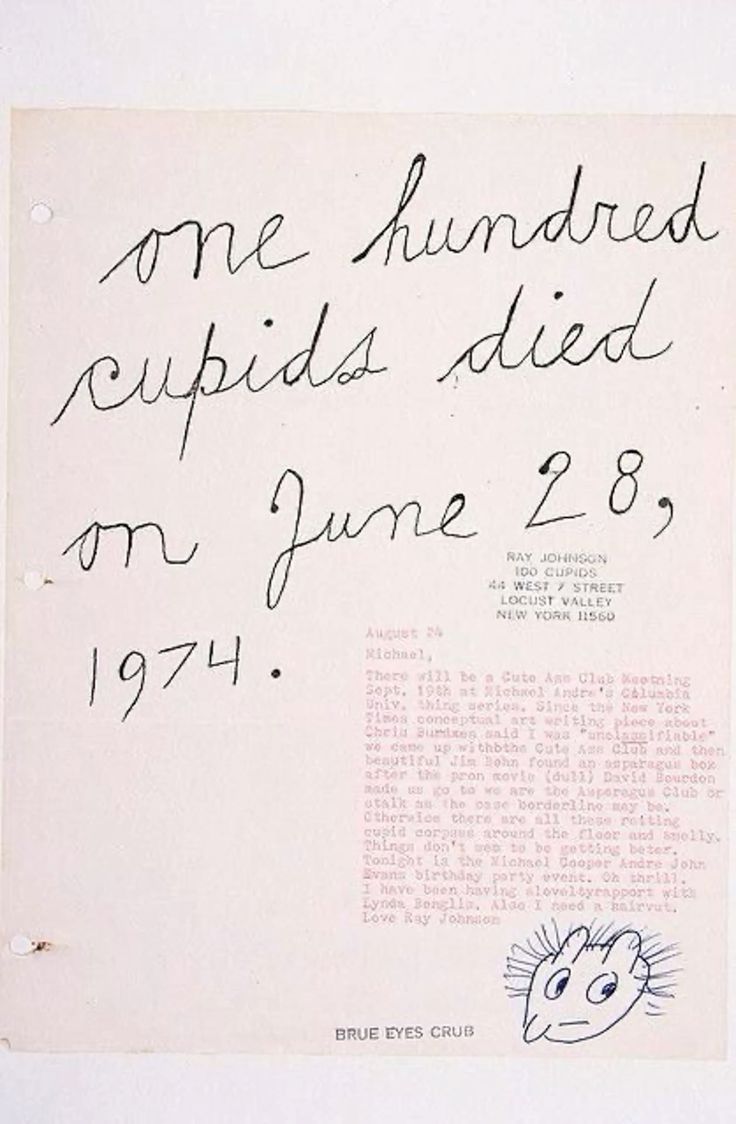 one hundred
cupids died
on June 28,
1974.
RAY JOHNSON
100 CUPIDS
44 WEST 7 STREET
LOCUST VALLEY
NEW YORK 11560
August 24
Michael,
There will be a Cute Ass Club Meetning
Sept. 19th at Michael Andre's Columbia
Univ. thing series. Since the New York
Times conceptual art writing piece about
Chris said I was "unclassifiable"
we came up withbthe Cute Ass Club and then
beautiful Jim found an asparagus box
after the pron movie (dull) David Bourdon
made us go to we are the Asparagus Club or
stalk as the case borderline may be.
Otherwise there are all these
cupid corpses around the floor and smelly.
Things don't to be getting beter.
Tonight is the Michael Cooper Andre John
Evans birthday party event. Oh thrill.
I have been having with
Lynda Benglis. Also I need a
Love Ray Johnson
BRUE EYES CRUB